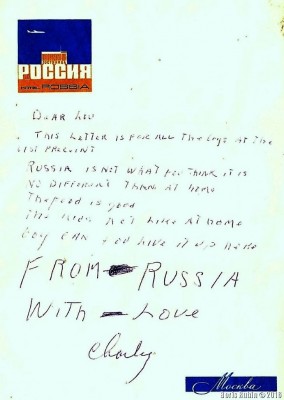 РОССИЯ
ROSSIA
DEAR
THIS LETTER IS FOR ALL THE BOYS AT THE
PRECINCT
RUSSIA IS NOT WHAT YOU THINK IT IS
DIFFERENT THAN AT HOME
THE FOOD IS GOOD
THE KIDS ACT LIKE AT HOME
BOY CAN YOU LIVE IT UP HERE
FROM - RUSSIA
WITH - LOVE
Charley
Москва
Boris Rubin © 2016